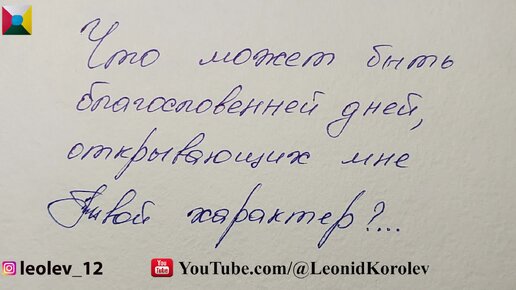 Что может быть
благословенней дней,
открывающих мне
Твой характер?...
leolev_12
You Tube
YouTube.com/@LeonidKorolev